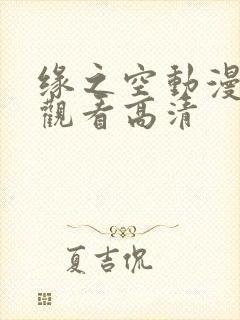 缘之空動漫
觀看高清
夏吉侃